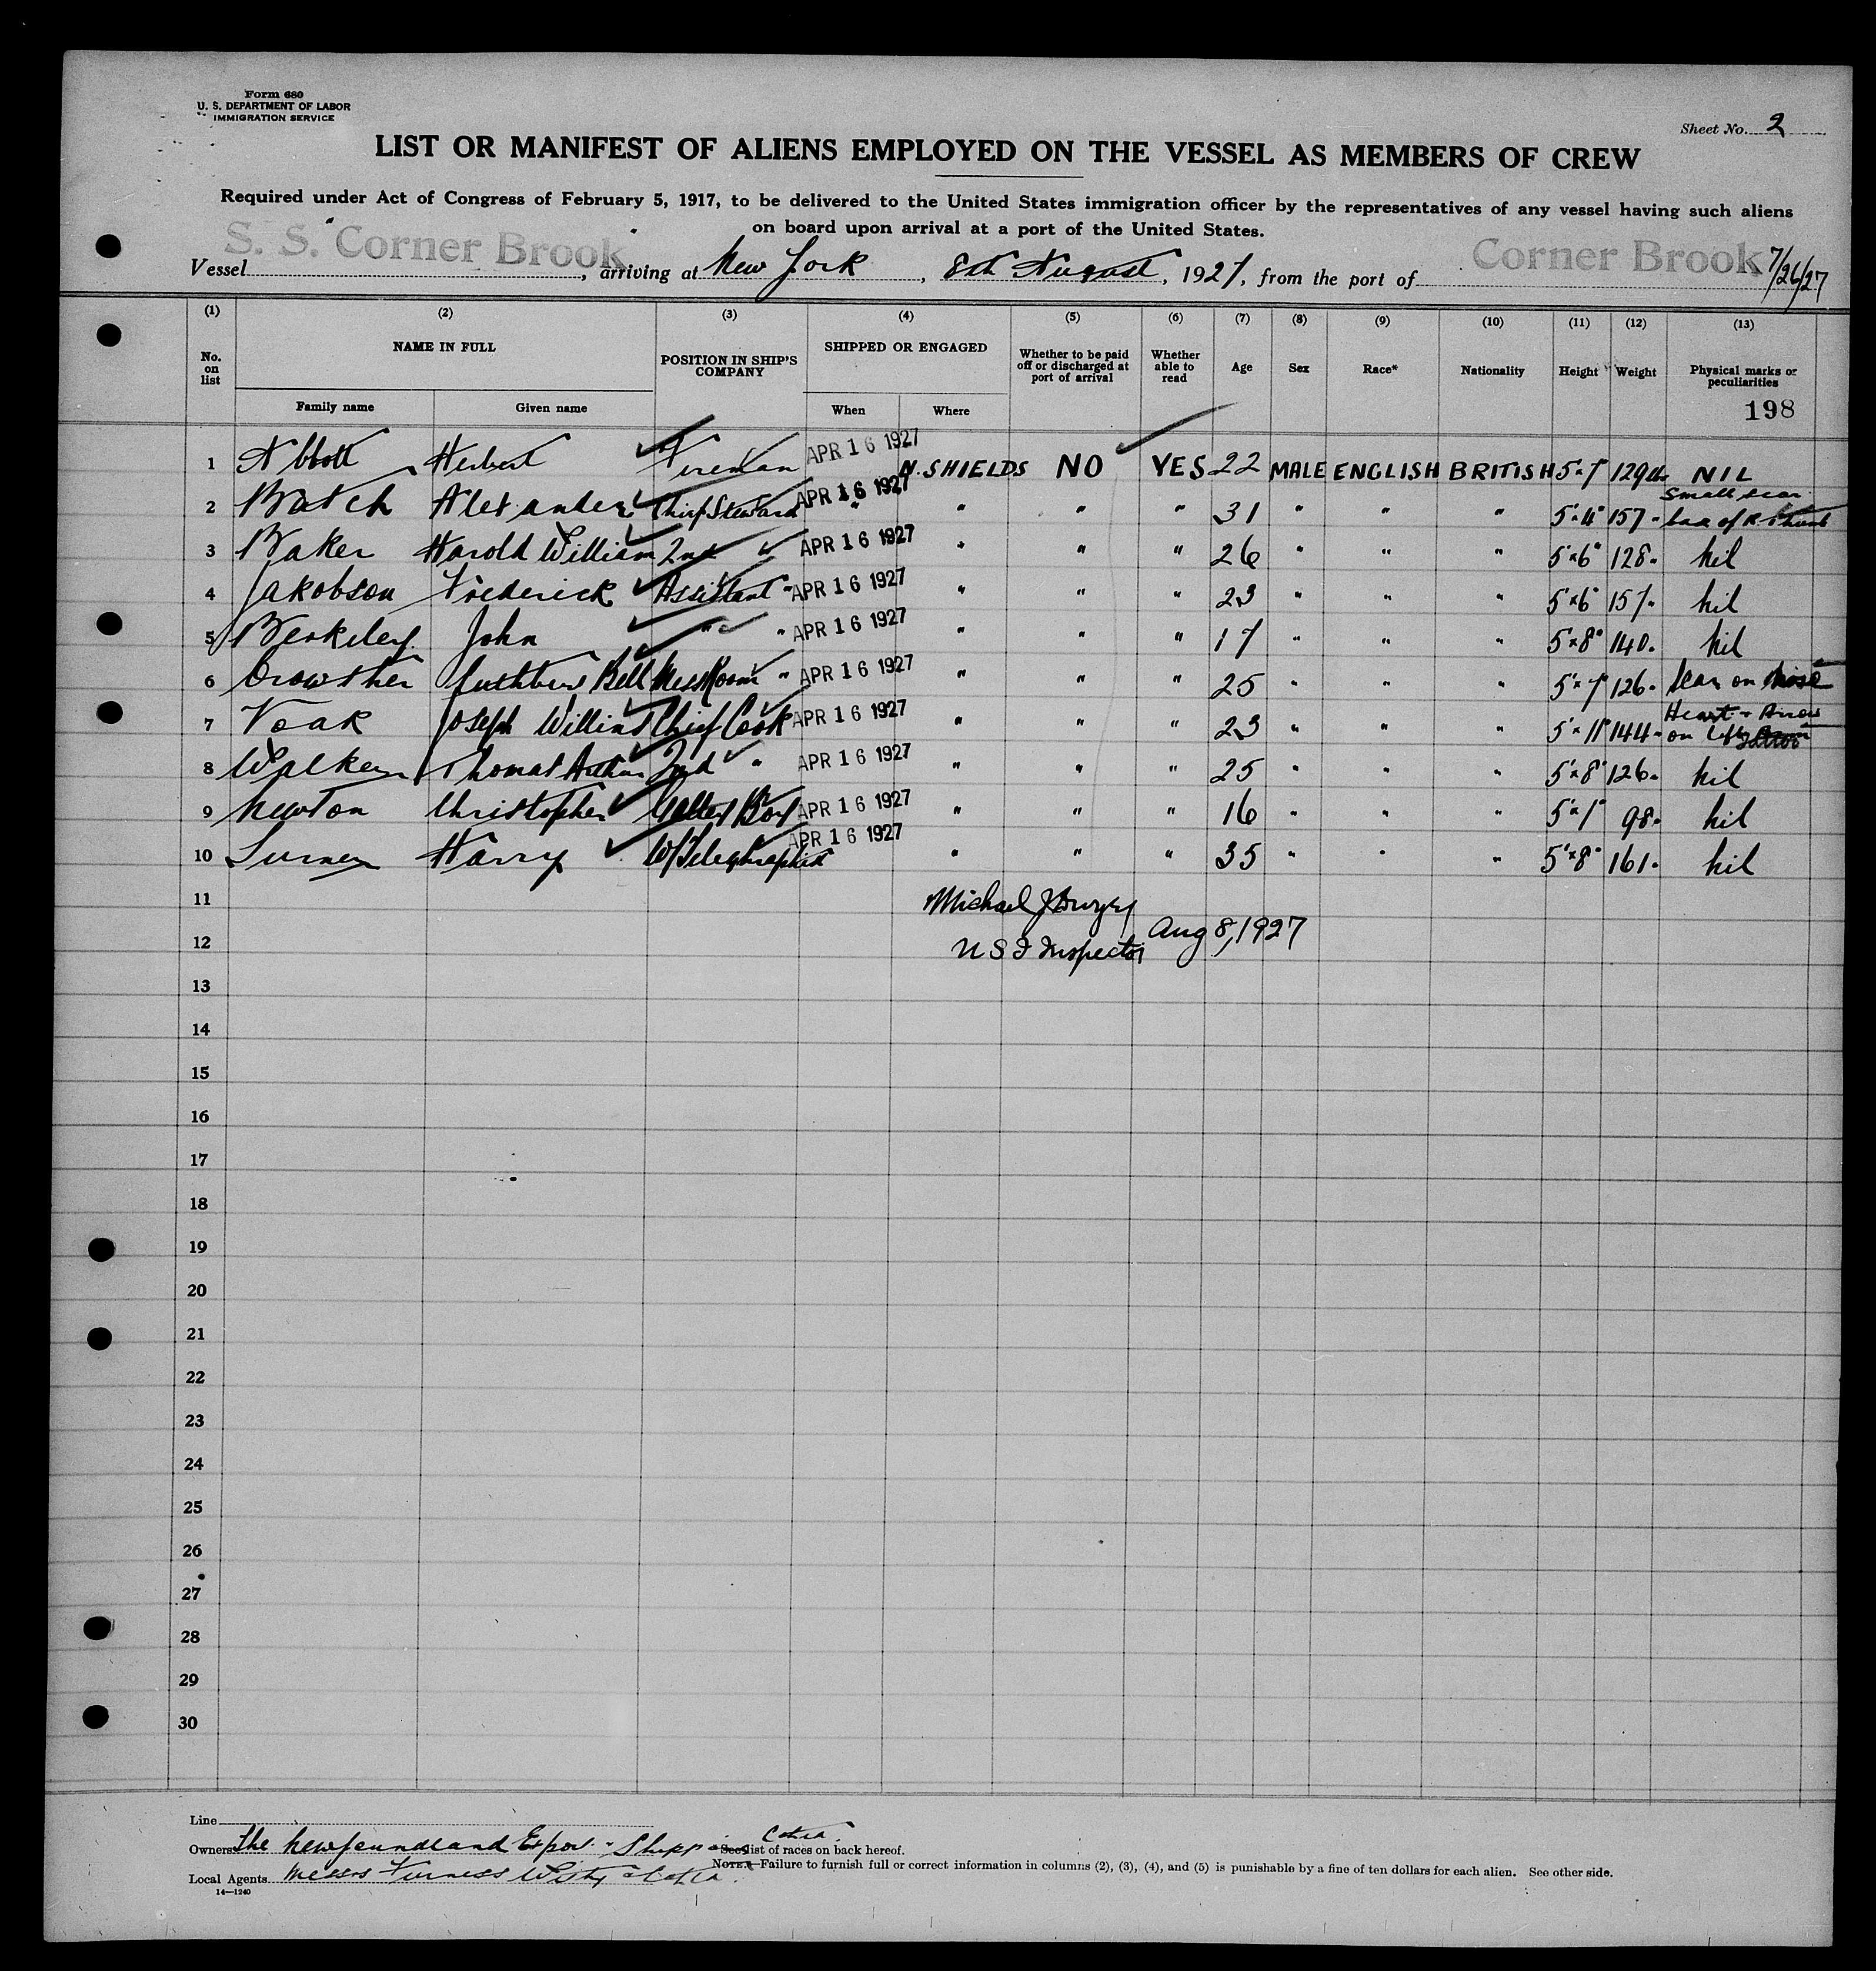 Form 680
U. S. DEPARTMENT OF LABOR
IMMIGRATION SERVICE
Sheet No. 2
LIST OR MANIFEST OF ALIENS EMPLOYED ON THE VESSEL AS MEMBERS OF CREW
Required under Act of Congress of February 5, 1917, to be delivered to the United States immigration officer by the representatives of any vessel having such aliens
on board upon arrival at a port of the United States.
Vessel S. S. Corner Brook, arriving at New York, 8th August, 1927, from the port of Corner Brook 7/26/27
(1) (2) (3) (4) (5) (6) (7) (8) (9) (10) (11) (12) (13)
No. on list NAME IN FULL POSITION IN SHIP'S COMPANY SHIPPED OR ENGAGED Whether to be paid off or discharged at port of arrival Whether able to read Age Sex Race* Nationality Height Weight Physical marks or peculiarities
Family name Given name When Where 198
1 Abbott Herbert Fireman APR 16 1927 N. SHIELDS NO YES 22 MALE ENGLISH BRITISH 5"7" 129 NIL
2 Batch Alexander Chief Steward APR 16 1927 " " " " 31 " " " 5"4" 157 " Small scar R Thumb
3 Baker Harold William 2nd " APR 16 1927 " " " 26 " " " 5"6" 128 " Nil
4 Jakobson Frederick Assistant " APR 16 1927 " " " 23 " " " 5"6" 157 " Nil
5 Berkeley John " " APR 16 1927 " " " 17 " " " 5"8" 140 " Nil
6 Crowther Cuthbert Bell Mess Room " APR 16 1927 " " " 25 " " " 5"7" 126 " Scar on Nose
7 Voak Joseph Chief Cook APR 16 1927 " " " 23 " " " 5"11" 144 " Heart + Arrow on left
8 Walker Thomas Arthur 2nd " APR 16 1927 " " " 25 " " " 5"8" 126 " Nil
9 Newton Christopher Galley Boy APR 16 1927 " " " 16 " " " 5"1" 98 " Nil
10 Turner Harry W/Telegraphist APR 16 1927 " " " 35 " " " 5"8" 161 " Nil
11 Michael J Dwyer
12 U S I Inspector Aug 8, 1927
13
14
15
16
17
18
19
20
21
22
23
24
25
26
27
28
29
30
Line
Owners The Newfoundland Export & Shipping *See list of races on back hereof.
NOTE.—Failure to furnish full or correct information in columns (2), (3), (4), and (5) is punishable by a fine of ten dollars for each alien. See other side.
Local Agents Messrs Furness Withy & Co
14—1240